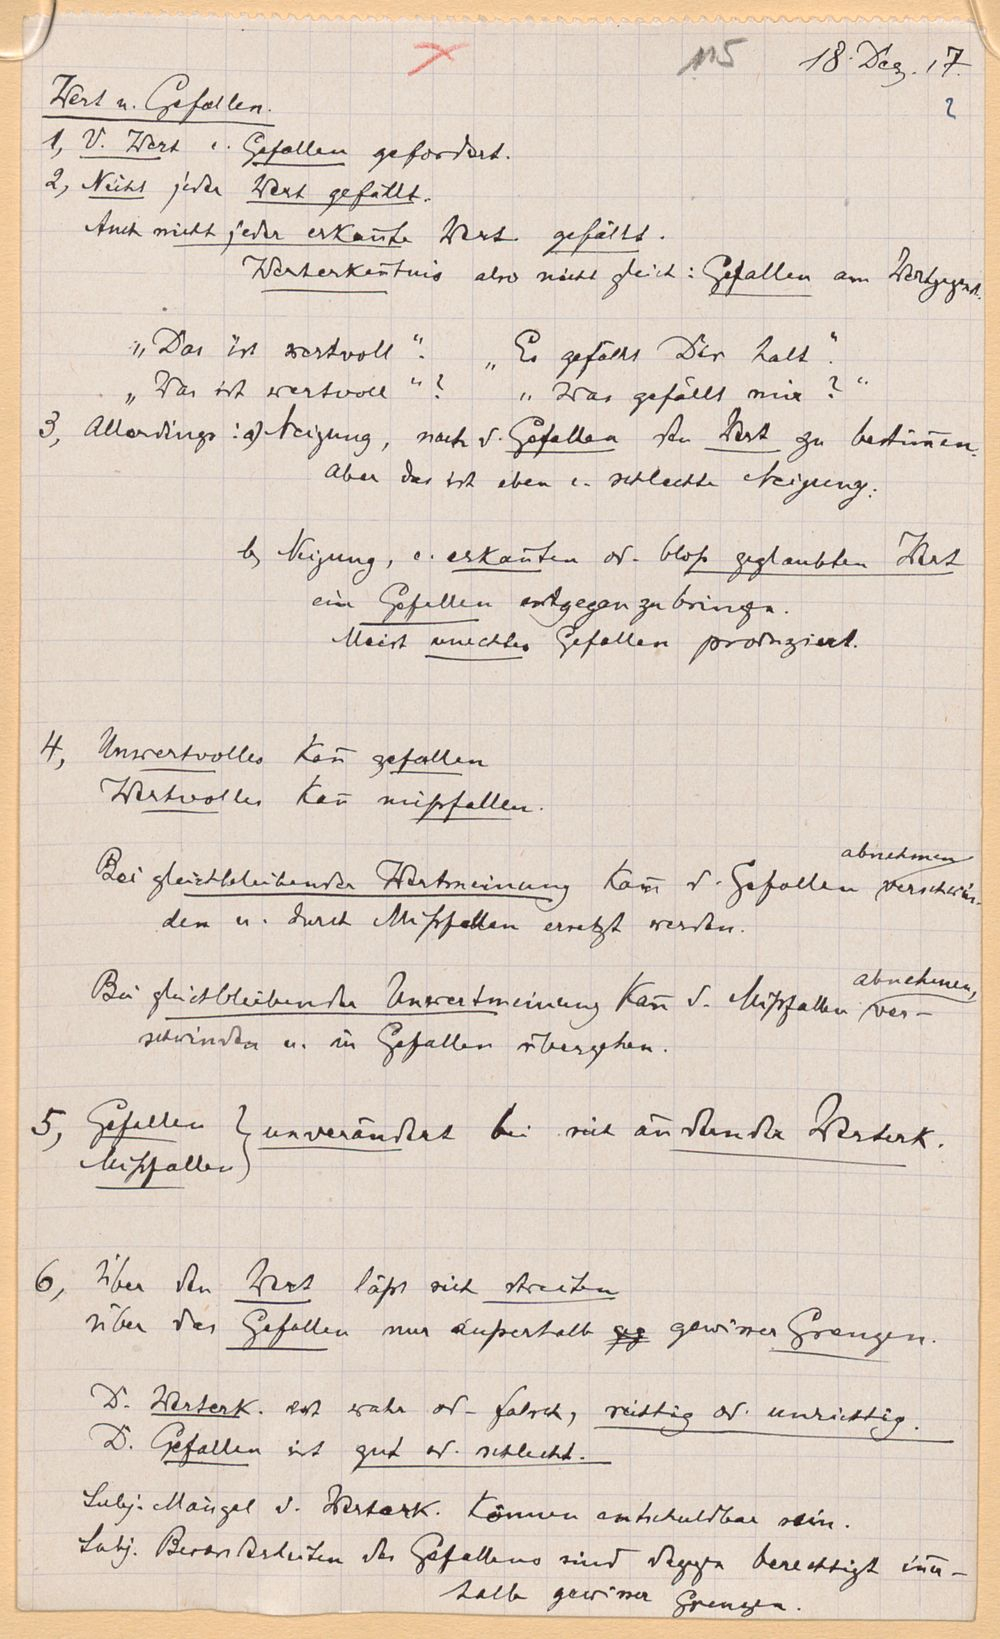 115 18. Dez. 17.
2
Wert u. Gefallen.
1, V. Wert e. Gefallen gefordert.
2, Nicht jeder Wert gefällt.
Auch nicht jeder erkan̄te Wert gefällt.
Werterken̄tnis also nicht gleich: Gefallen am Wertgegenst.
„Das ist wertvoll“. „Es gefällt Dir halt“.
„Was ist wertvoll“? „Was gefällt mir?“
3, Allerdings: a) Neigung, nach d. Gefallen den Wert zu bestim̄en.
Aber das ist eben e. schlechte Neigung.
b) Neigung, e. erkan̄ten od. bloß geglaubten Wert
ein Gefallen entgegenzubringen.
Meist unechtes Gefallen produziert.
4, Unwertvolles kan̄ gefallen
Wertvolles kan̄ mißfallen.
abnehmen
Bei gleichbleibender Wertmeinung kan̄ d. Gefallen verschwin-
den u. durch Mißfallen ersetzt werden.
abnehmen,
Bei gleichbleibender Unwertmeinung kan̄ d. Mißfallen ver-
schwinden u. in Gefallen übergehen.
5, Gefallen } unverändert bei sich ändernder Werterk.
Mißfallen
6, Über den Wert läßt sich streiten
über das Gefallen nur außerhalb geg gewisser Grenzen.
D. Werterk. ist wahr od. falsch, richtig od. unrichtig.
D. Gefallen ist gut od. schlecht.
Subj. Mängel d. Werterk. können entschuldbar sein.
Subj. Besonderheiten des Gefallens sind dagegen berechtigt in̄er-
halb gewisser Grenzen.